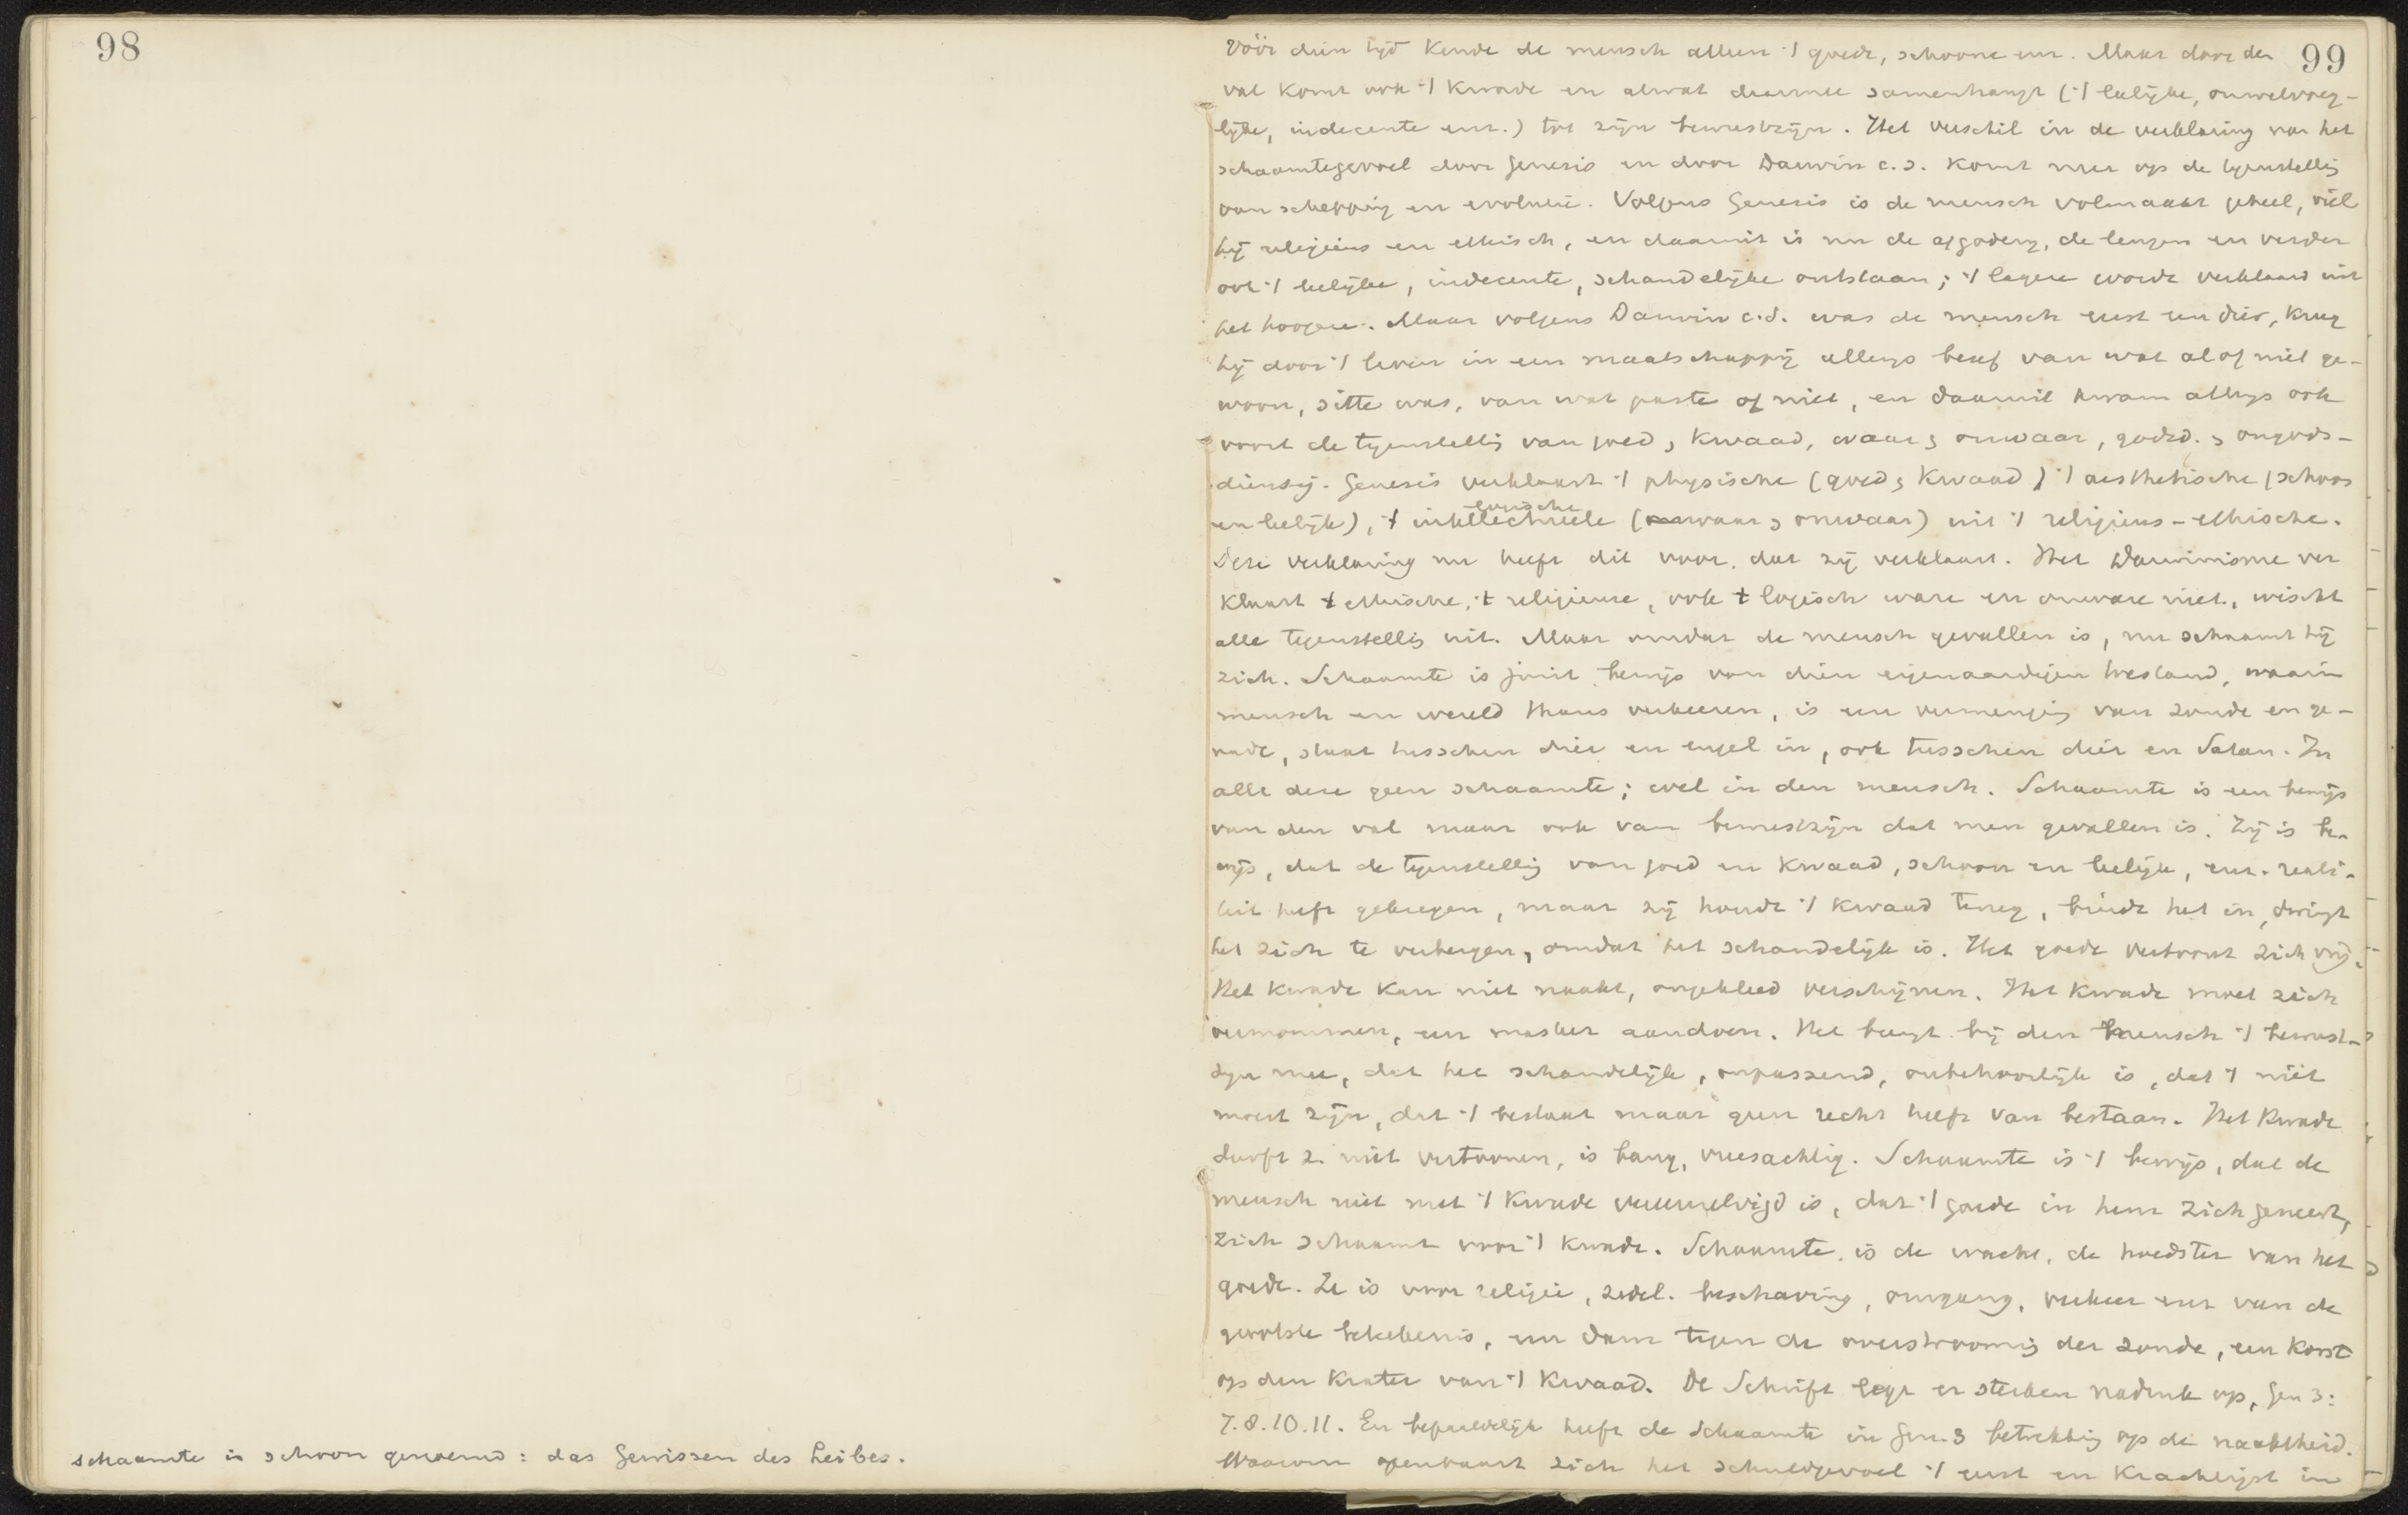 98
schaamte is schoon genoemd: das Gewissen des Leibes.
99
Vóór dien tijd kende de mensch alleen 't goede, schoone enz. Maar door den
val komt ook 't kwade en alwat daarmee samenhangt ('t leelijke, onwelvoeg-
lijke, indecente enz.) tot zijn bewustzijn. Het verschil in de verklaring van het
schaamtegevoel door Genesis en door Darwin c.s. komt neer op de tegenstellig
van schepping en evolutie. Volgens Genesis is de mensch volmaakt geheel, viel
hij religieus en ethisch, en daaruit is nu de afgoderij, de leugen en verder
ook 't leelijke, indecente, schandelijke ontstaan; 't lagere wordt verklaard uit
het hoogere. Maar volgens Darwin c.s. was de mensch eerst een dier, kreeg
hij door 't leven in een maatschappij allengs besef van wat al of niet ge-
woon, sitte was, van wat paste of niet, en daaruit kwam allengs ook
voort de tegenstellig van goed, kwaad, waar, onwaar, godsd., ongods-
dienstig. Genesis verklaart 't physische (goed, kwaad) 't aesthetische (schoon
en leelijk), 't intellectueele logische (waar, onwaar) uit 't religieus-ethische.
Deze verklaring nu heeft dit voor, dat zij verklaart. Het Darwinisme ver
klaart 't ethische, 't religieuse, ook 't logisch ware en onware niet, wischt
alle tegenstellig uit. Maar omdat de mensch gevallen is, nu schaamt hij
zich. Schaamte is juist bewijs van dien eigenaardigen toestand, waarin
mensch en wereld thans verkeeren, is een vermenging van zonde en ge-
nade, staat tusschen dier en engel in, ook tusschen dier en Satan. In
alle deze geen schaamte; wel in den mensch. Schaamte is een bewijs
van den val maar ook van bewustzijn dat men gevallen is. Zij is be-
wijs, dat de tegenstellig van goed en kwaad, schoon en leelijk, enz. reali-
teit heeft gekregen, maar zij houdt 't kwaad terug, bindt het in, dwingt
het zich te verbergen, omdat het schandelijk is. Het goede vertoont zich vrij.
Het kwade kan niet naakt, ongekleed verschijnen. Het kwade moet zich
vermommen, een masker aandoen. Het brengt bij den mensch 't bewust-
zijn mee, dat het schandelijk, onpassend, onbehoorlijk is, dat 't niet
moest zijn, dat 't bestaat maar geen recht heeft van bestaan. Het kwade
durft z. niet vertoonen, is bang, vreesachtig. Schaamte is 't bewijs, dat de
mensch niet met 't kwade vereenzelvigd is, dat 't goede in hem zich geneert,
zich schaamt voor 't kwade. Schaamte is de wacht, de hoedster van het
goede. Ze is voor religie, zedel. beschaving, omgang, verkeer enz van de
grootste beteekenis, een dam tegen de overstrooming der zonde, een korst
op den krater van 't kwaad. De Schrift legt er sterken nadruk op, Gen 3:
7.8.10.11. En bepaaldelijk heeft de schaamte in Gen. 3 betrekking op de naaktheid.
Waarom openbaart zich het schuldgevoel 't eerst en krachtigst in